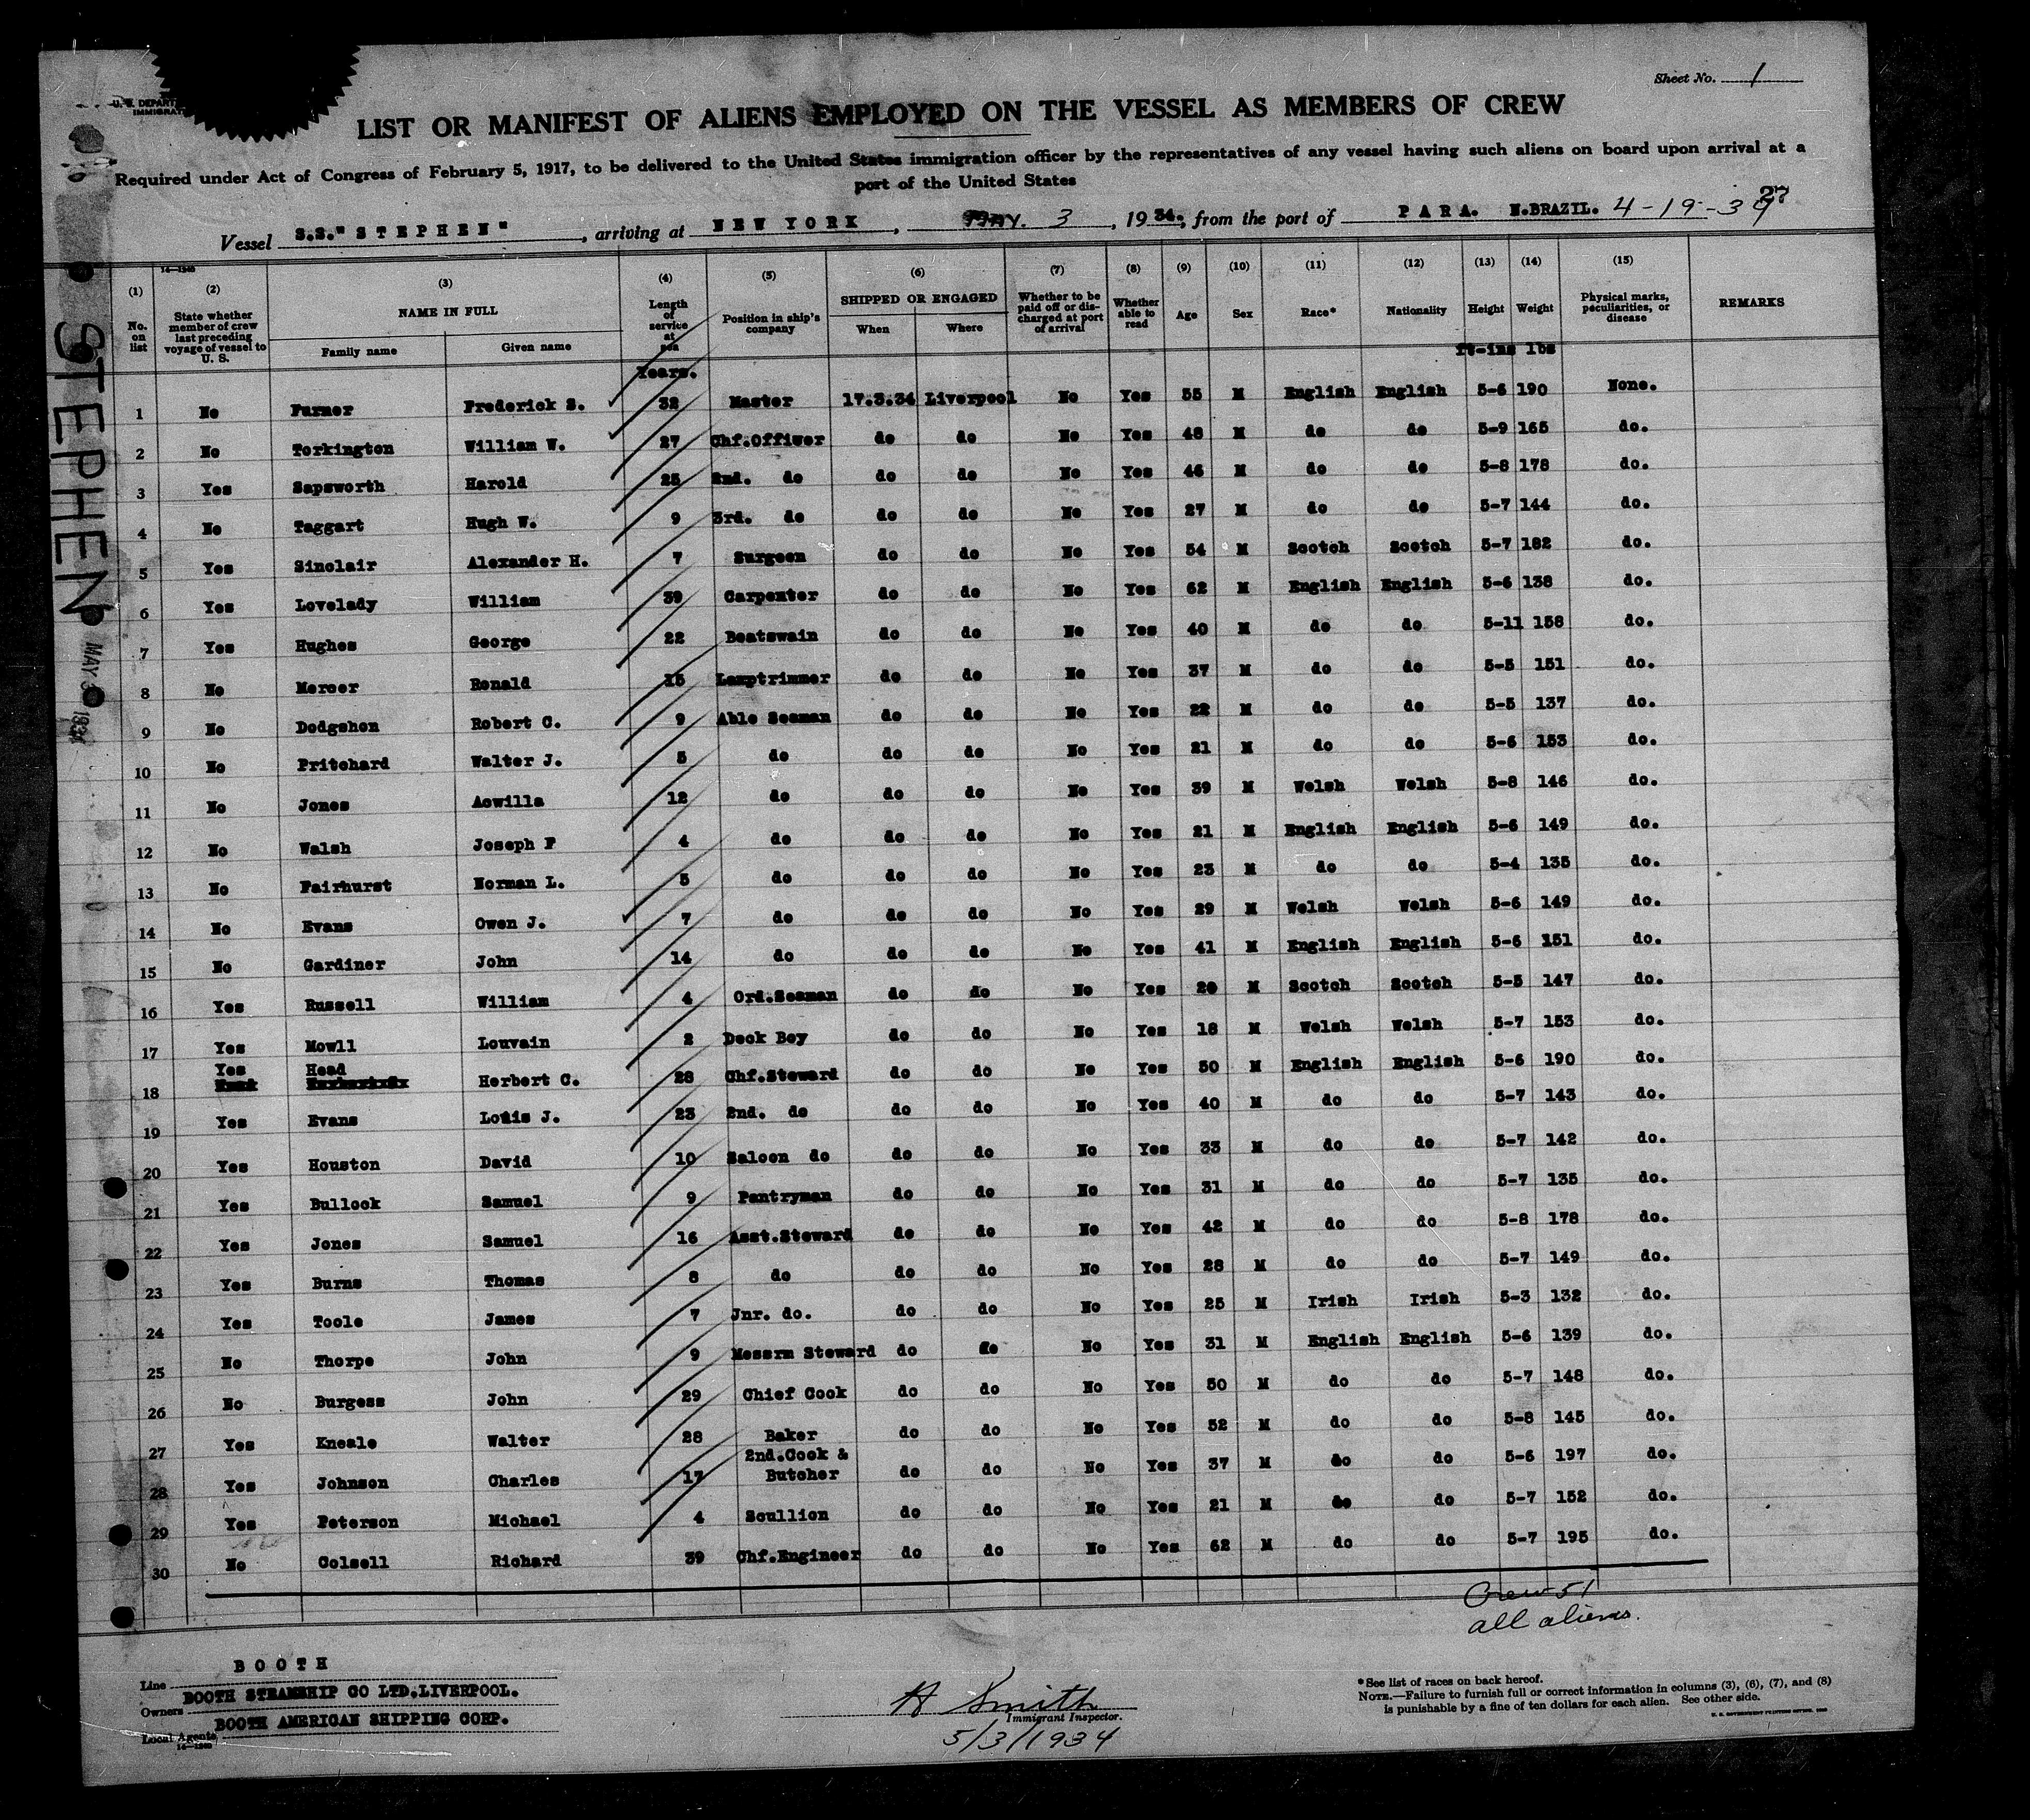 Sheet No. 1
U. S. DEPART
IMMIGRAT
LIST OR MANIFEST OF ALIENS EMPLOYED ON THE VESSEL AS MEMBERS OF CREW
Required under Act of Congress of February 5, 1917, to be delivered to the United States immigration officer by the representatives of any vessel having such aliens on board upon arrival at a
port of the United States
27
Vessel S.S." S T E P H E N " , arriving at N E W Y O R K , May. 3 , 19 34. , from the port of P A R A. N.BRAZIL. 4-19-34
STEPHEN
MAY 3 1934
14—1240
(1) (2) (3) (4) (5) (6) (7) (8) (9) (10) (11) (12) (13) (14) (15)
No. on list State whether member of crew last preceding voyage of vessel to U. S. NAME IN FULL Length of service at sea Position in ship's company SHIPPED OR ENGAGED Whether to be paid off or discharged at port of arrival Whether able to read Age Sex Race* Nationality Height Weight Physical marks, peculiarities, or disease REMARKS
Family name Given name When Where
Years. ft-ins lbs
1 No Furner Frederick S. 32 Master 17.3.34 Liverpool No Yes 55 M English English 5-6 190 None.
2 No Torkington William W. 27 Chf.Officer do do No Yes 48 M do do 5-9 165 do.
3 Yes Sapsworth Harold 25 2nd. do do do No Yes 46 M do do 5-8 178 do.
4 No Taggart Hugh W. 9 3rd. do do do No Yes 27 M do do 5-7 144 do.
5 Yes Sinclair Alexander H. 7 Surgeon do do No Yes 54 M Scotch Scotch 5-7 182 do.
6 Yes Lovelady William 39 Carpenter do do No Yes 62 M English English 5-6 138 do.
7 Yes Hughes George 22 Boatswain do do No Yes 40 M do do 5-11 158 do.
8 No Mercer Ronald 15 Lamptrimmer do do No Yes 37 M do do 5-5 151 do.
9 No Dodgshon Robert C. 9 Able Seaman do do No Yes 22 M do do 5-5 137 do.
10 No Pritchard Walter J. 5 do do do No Yes 21 M do do 5-6 153 do.
11 No Jones Acwilla 12 do do do No Yes 39 M Welsh Welsh 5-8 146 do.
12 No Walsh Joseph P 4 do do do No Yes 21 M English English 5-6 149 do.
13 No Fairhurst Norman L. 5 do do do No Yes 23 M do do 5-4 135 do.
14 No Evans Owen J. 7 do do do No Yes 29 M Welsh Welsh 5-6 149 do.
15 No Gardiner John 14 do do do No Yes 41 M English English 5-6 151 do.
16 Yes Russell William 4 Ord.Seaman do do No Yes 20 M Scotch Scotch 5-5 147 do.
17 Yes Mowll Louvain 2 Deck Boy do do No Yes 18 M Welsh Welsh 5-7 153 do.
18 Yes Head Herbert C. 28 Chf.Steward do do No Yes 50 M English English 5-6 190 do.
19 Yes Evans Louis J. 23 2nd. do do do No Yes 40 M do do 5-7 143 do.
20 Yes Houston David 10 Saloon do do do No Yes 33 M do do 5-7 142 do.
21 Yes Bullock Samuel 9 Pantryman do do No Yes 31 M do do 5-7 135 do.
22 Yes Jones Samuel 16 Asst.Steward do do No Yes 42 M do do 5-8 178 do.
23 Yes Burns Thomas 8 do do do No Yes 28 M do do 5-7 149 do.
24 Yes Toole James 7 Jnr. do. do do No Yes 25 M Irish Irish 5-3 132 do.
25 No Thorpe John 9 Messrm Steward do do No Yes 31 M English English 5-6 139 do.
26 No Burgess John 29 Chief Cook do do No Yes 50 M do do 5-7 148 do.
27 Yes Kneale Walter 28 Baker do do No Yes 52 M do do 5-8 145 do.
28 Yes Johnson Charles 17 2nd.Cook & Butcher do do No Yes 37 M do do 5-6 197 do.
29 Yes Peterson Michael 4 Scullion do do No Yes 21 M do do 5-7 152 do.
30 No Colsell Richard 39 Chf.Engineer do do No Yes 62 M do do 5-7 195 do.
Crew 51
all aliens.
Line B O O T H
Owners BOOTH STEAMSHIP CO LTD.LIVERPOOL.
Local Agents BOOTH AMERICAN SHIPPING CORP.
14—1240
A Smith
Immigrant Inspector.
5/3/1934
*See list of races on back hereof.
NOTE.—Failure to furnish full or correct information in columns (3), (6), (7), and (8)
is punishable by a fine of ten dollars for each alien. See other side.